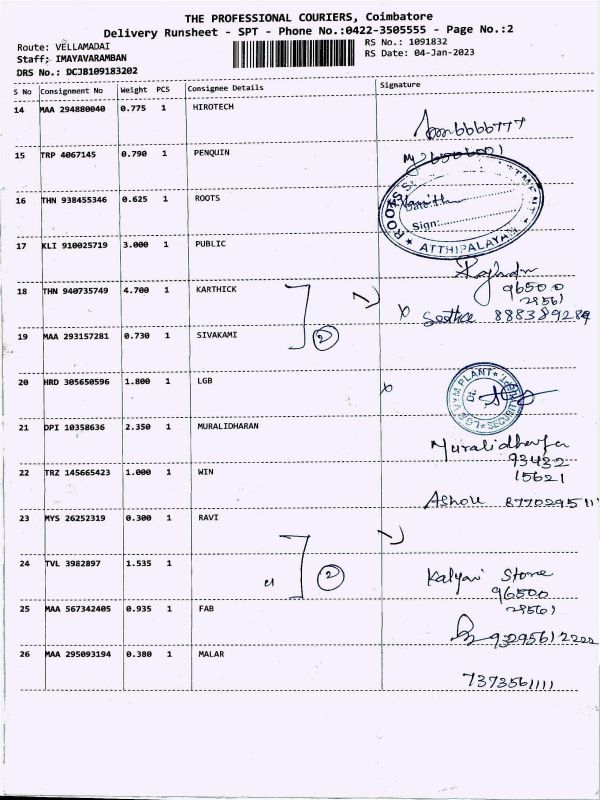 THE PROFESSIONAL COURIERS, Coimbatore
Delivery Runsheet - SPT - Phone No.:0422-3505555 - Page No.:2
Route: VELLAMADAI
RS No.: 1091832
Staff; IMAYAVARAMBAN
RS Date: 04-Jan-2023
DRS No.: DCJB109183202
S No Consignment No Weight PCS Consignee Details Signature
14 MAA 294880040 0.775 1 HIROTECH
15 TRP 4067145 0.790 1 PENQUIN
16 THN 938455346 0.625 1 ROOTS
Date:
Sign:
ROOTS
ATTHIPALAYAM
17 KLI 910025719 3.000 1 PUBLIC
18 THN 940735749 4.700 1 KARTHICK
96500
28561
2
19 MAA 293157281 0.730 1 SIVAKAMI
20 HRD 305650596 1.800 1 LGB
PLANT
SECURITY
21 DPI 10358636 2.350 1 MURALIDHARAN
Muralidharan
93432
15621
22 TRZ 145665423 1.000 1 WIN
Ashok
23 MYS 26252319 0.300 1 RAVI
24 TVL 3982897 1.535 1
2
Kalyani Store
96500
28561
25 MAA 567342405 0.935 1 FAB
26 MAA 295093194 0.380 1 MALAR
7373561111